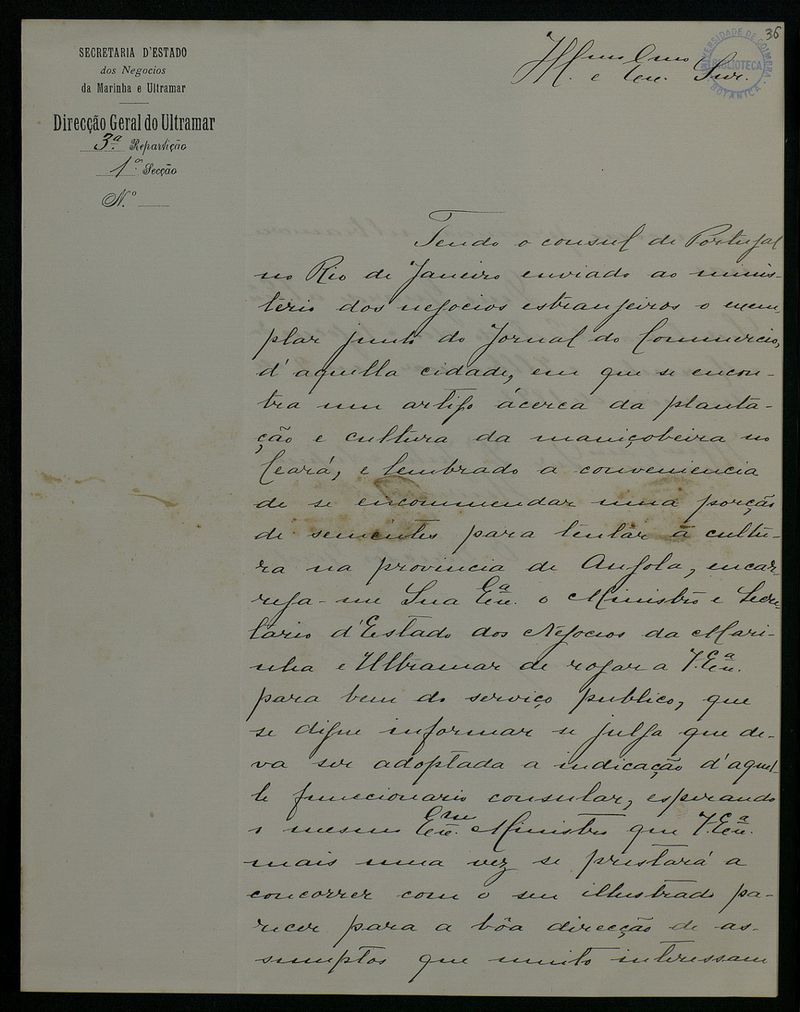 36
SECRETARIA D'ESTADO
dos Negocios
da Marinha e Ultramar
Direcção Geral do Ultramar
3.ª Repartição
1.ª Secção
N.º
UNIVERSIDADE DE COIMBRA
BIBLIOTECA
BOTANICA
Illmo e Exmo Snr.
Tendo o consul de Portugal
no Rio de Janeiro enviado ao minis-
terio dos negocios estrangeiros o exem-
plar junto do Jornal do Commercio,
d'aquella cidade, em que se encon-
tra um artigo ácerca da planta-
ção e cultura da maniçobeira no
Ceará, e lembrado a conveniencia
de se encommendar uma porção
de sementes para tentar a cultu-
ra na provincia de Angola, encar-
rega-me Sua Exª o Ministro e Secre-
tario d'Estado dos Negocios da Mari-
nha e Ultramar de rogar a V. Exª
para bem do serviço publico, que
se digne informar se julga que de-
va ser adoptada a indicação d'aquel-
le funccionario consular, esperando
o mesmo Exmo Ministro que V. Exª
mais uma vez se prestará a
concorrer com o seu illustrado pa-
recer para a bôa direcção de as-
sumptos que muito interessam